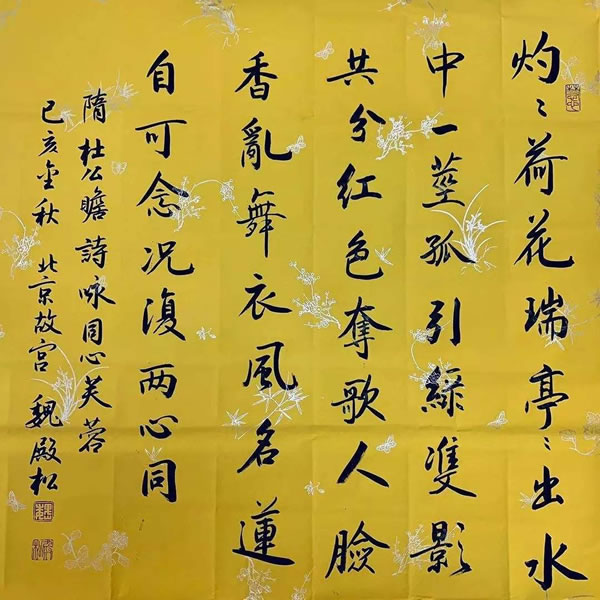 灼〻荷花瑞亭〻出水
中一莖孤引綠雙影
共分红色奪歌人臉
香亂舞衣風名蓮
自可念况復两心同
隋杜公瞻詩咏同心芙蓉
己亥金秋 北京故宫 魏殿松